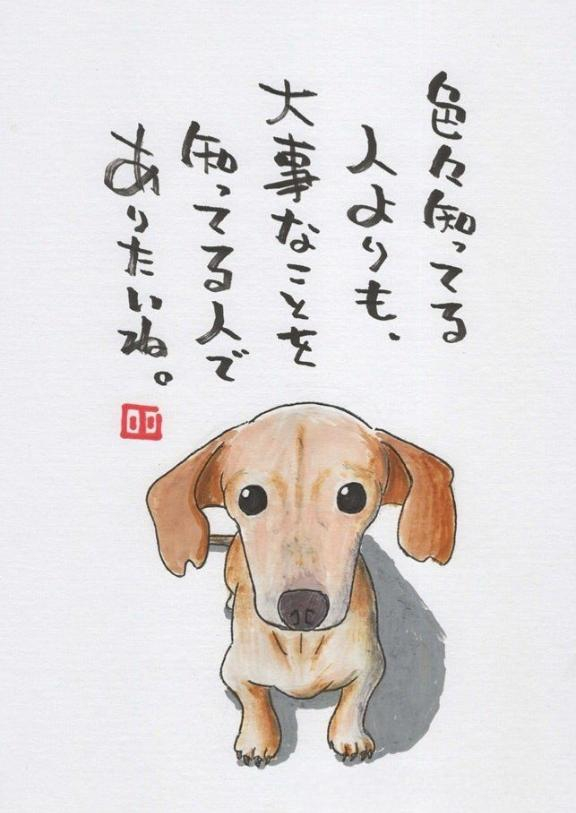 色々知ってる
人よりも、
大事なことを
知ってる人で
ありたいね。